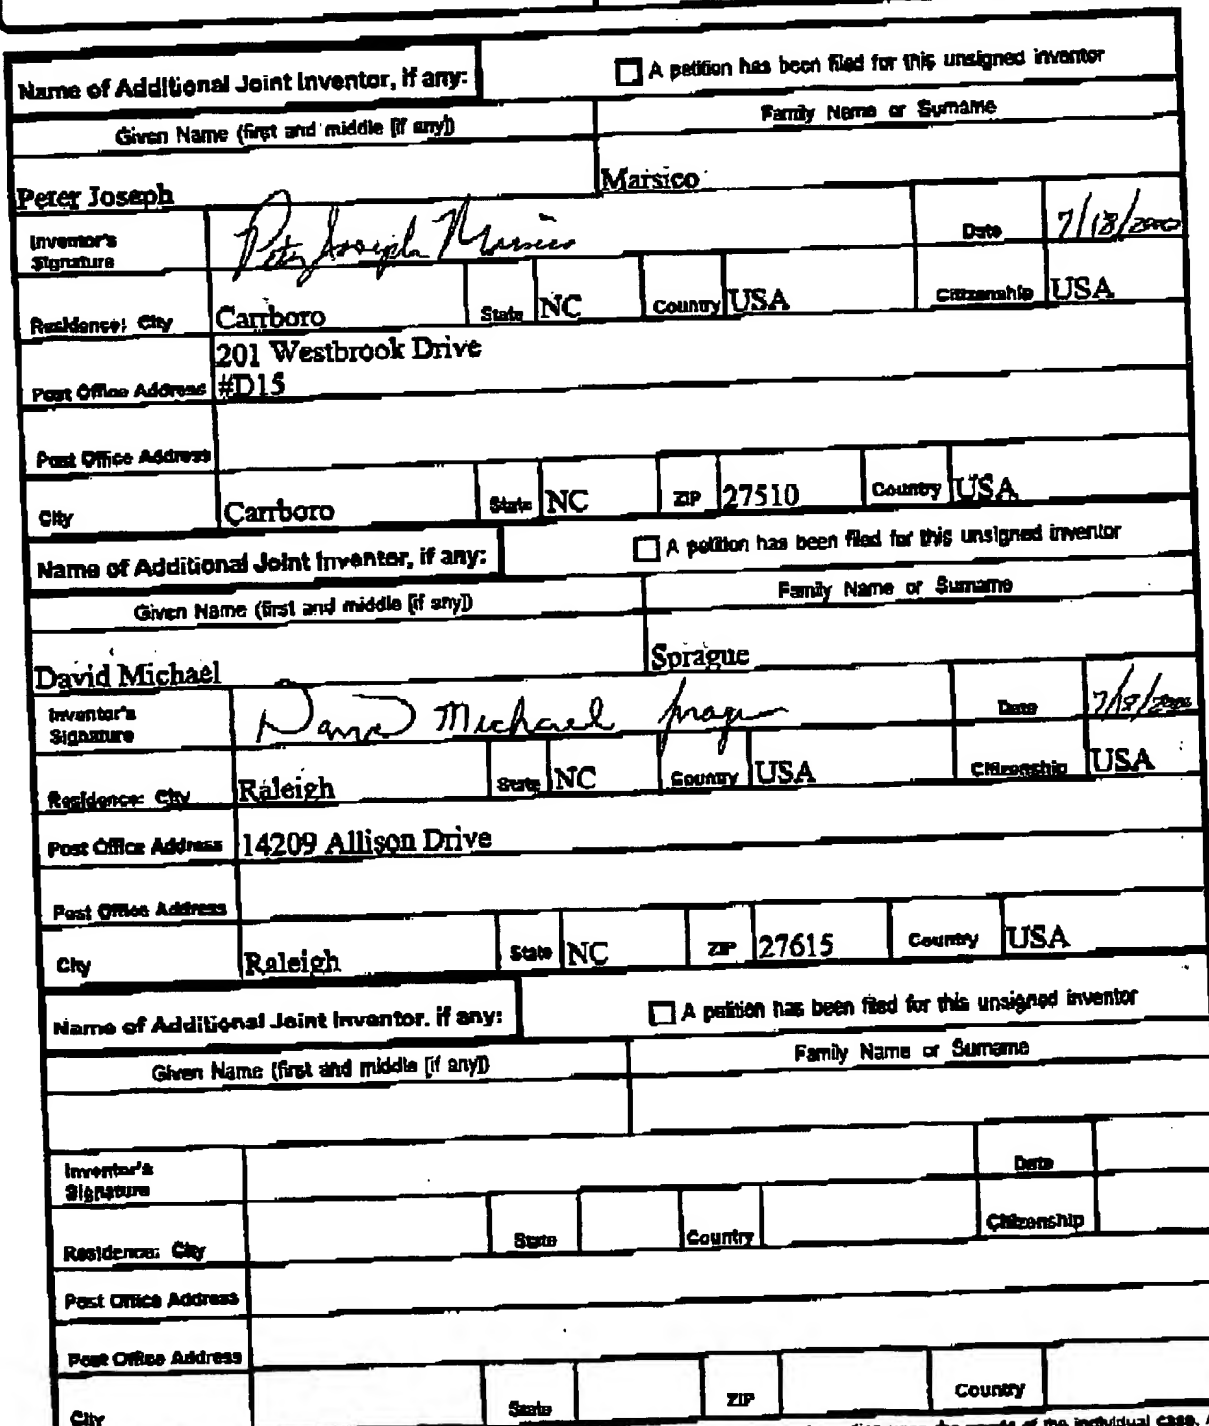 Name of Additional Joint Inventor, if any: ☐ A petition has been filed for this unsigned inventor
Given Name (first and middle [if any]) Family Name or Surname
Peter Joseph Marsico
Inventor's Signature Peter Joseph Marsico Date 7/18/2000
Residence: City Carrboro State NC Country USA Citizenship USA
201 Westbrook Drive
Post Office Address #D15
Post Office Address
City Carrboro State NC ZIP 27510 Country USA
Name of Additional Joint Inventor, if any: ☐ A petition has been filed for this unsigned inventor
Given Name (first and middle [if any]) Family Name or Surname
David Michael Sprague
Inventor's Signature David Michael Sprague Date 7/18/2000
Residence: City Raleigh State NC Country USA Citizenship USA
Post Office Address 14209 Allison Drive
Post Office Address
City Raleigh State NC ZIP 27615 Country USA
Name of Additional Joint Inventor, if any: ☐ A petition has been filed for this unsigned inventor
Given Name (first and middle [if any]) Family Name or Surname
Inventor's Signature Date
Residence: City State Country Citizenship
Post Office Address
Post Office Address
City State ZIP Country
of the individual case.